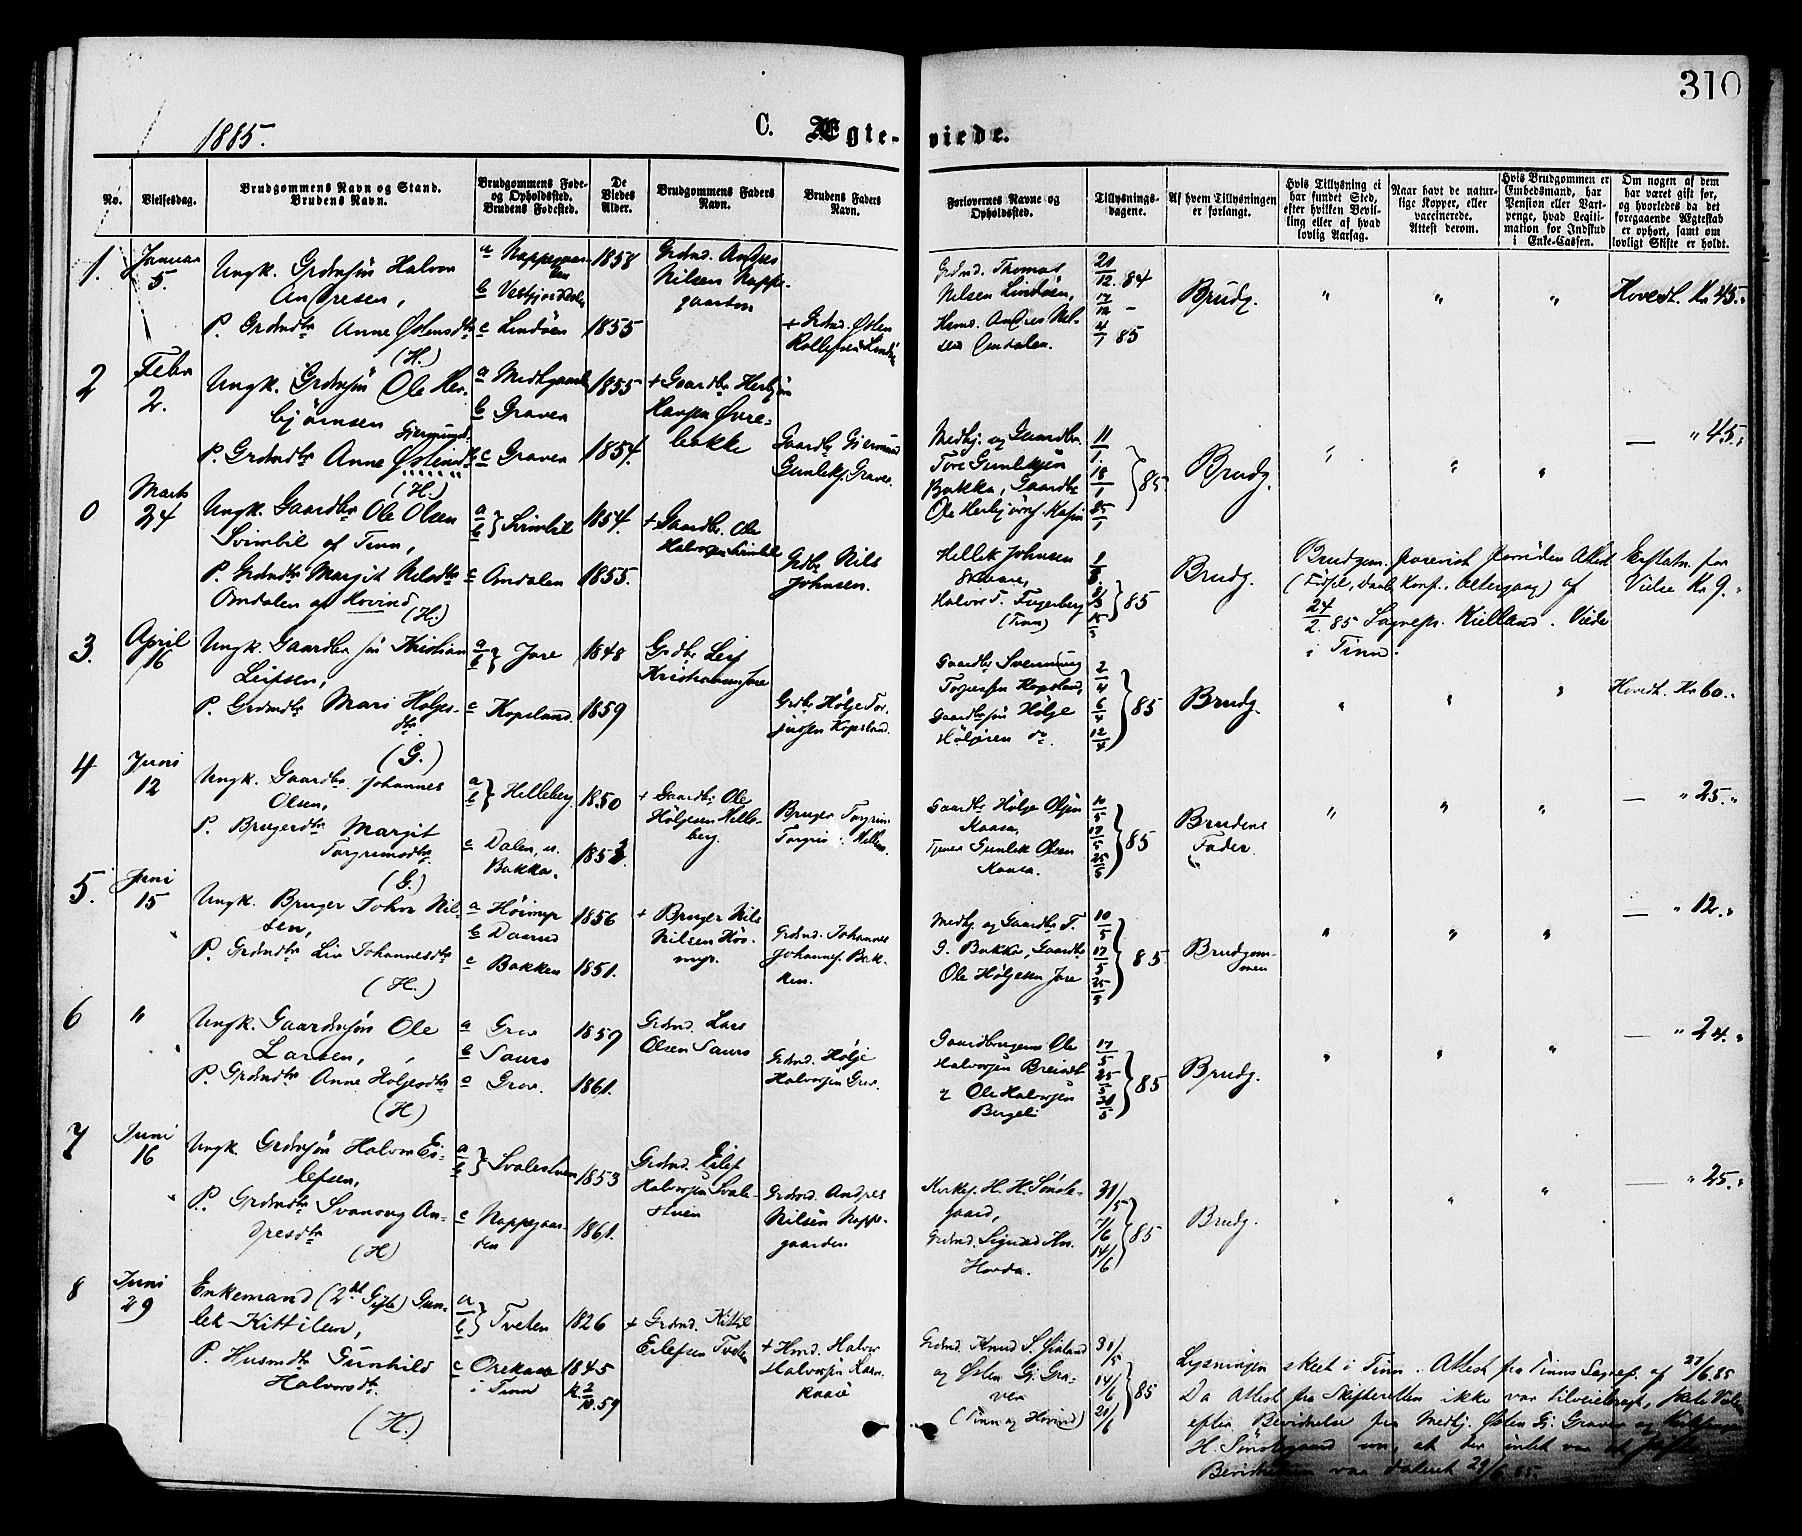 310
1885.
C. Ægte-viede.
No.
Vielsesdag.
Brudgommens Navn og Stand.
Brudens Navn.
Brudgommens Føde- og Opholdssted.
Brudens Fødested.
De Viedes Alder.
Brudgommens Faders Navn.
Brudens Faders Navn.
Forlovernes Navne og Opholdssted.
Tillysnings-dagene.
Af hvem Tillysningen er forlangt.
Hvis Tillysning ei har fundet Sted, efter hvilken Bevilling eller af hvad lovlig Aarsag.
Naar havt de naturlige Kopper, eller vaccinerede. Attest derom.
Hvis Brudgommen er Embedsmand, har Pension eller Vartpenge, hvad Legitimation for Indskud i Enke-Cassen.
Om nogen af dem har været gift før, og hvorledes da det foregaaende Ægteskab er ophørt, samt om lovligt Skifte er holdt.
1.
Januar
5.
Ungk. Grdmsøn Halvor
Andresen,
P. Grdmdtr Anne Østensdtr
(H.)
a Nappegaarden
b Vestfjorddalen
c Lindøen
1858
1855
Grdmd. Andres
Nilsen Nappe-
gaarden
+ Grdmd. Østen
Grdmd. Thomas
Nilsen Lindøen,
Andres Nil-
sen Omdalen.
21/12 84
4/1 85
Brudg.
"
"
"
Hovedt. Kr 45."
2
Febr
2.
Ungk. Grdmsøn Ole Her-
bjørnsen
Gjermunds
P. Grdmdtr Anne Østensd.
(H.)
b Graven
c Graven
1855
1854.
+ Gaardbr Herbjørn
Hansen Øvre-
bakke
Gaardbr Gjermund
Gunleiks. Graver
Medhj. og Gaardbr.
Tore Gunleiksen
Bakka, Gaardbr
Ole Herbjørns.
11/1.
18/1
25/1
} 85
Brudg.
"
"
"
— " 45."
0
Marts
24
Ungk. Gaardbr Ole Olsen
Svinbil af Tinn,
P. Grdmdtr Margit Nilsdtr
Omdalen af Hovind
(H.)
a
b } Svinbil
c Omdalen
1854.
1855.
+ Gaardbr. Ole
Halvorsen Svinbil
Grdbr Nils
Johnsen.
Hellik Johnsen
Skavare,
Halvor T. Fugerberg
(Tinn)
1/3.
8/3
15/3
} 85
Brudg.
Brudgom. foreviste Attest
(Fødsel, Daab, Konf., Altergang) af
24/2. 85 Sognepr. Kielland. Viede
i Tinn.
for
Vielse Kr 9."
3.
April
16
Ungk. Gaardbr søn Kristian
Leifsen,
P. Grdmdtr Mari Holjes-
dtr
(G.)
a
b } Jore
c Kopsland
1848
1859
Grdbr Leif
Kristiansen Jore
Grdbr Høljе Tor-
jussen Kopsland.
Gaardbr Svennung
Torjussen Kopsland,
Gaardbrsøn Hølje
Høljesen do.
2/4
6/4
12/4
} 85
Brudg.
"
"
"
Hovedt. Kr 60."
4
Juni
12
Ungk. Gaardbr. Johannes
Olsen,
P. Brugerdtr Margit
Torgrimsdtr
(G.)
a
b } Helleberg
c Dalen, u.
Bakka.
1850
+ Gaardbr Ole
Høljesen Helle-
berg.
Bruger Torgrim
Gaardbr Hølje Olsen
Kaasa,
Tjener Gunleik Olsen
Kaasa.
10/5
17/5
25/5
} 85
Brudens
Fader.
"
"
"
— " 25."
5.
Juni
15
Ungk. Bruger John Nil-
sen,
P. Grdmdtr Liv Johannesdtr
(H.)
a Høimyr
b Daarud
c Bakken
1856
1851.
+ Bruger Nils
Nilsen Høi-
myr.
Grdmd. Johannes
Johannes. Bak-
ken.
Medhj. og Gaardbr T.
G. Bakka, Gaardbr
Ole Høljesen Jore
10/5
17/5
25/5
} 85
Brudgom-
men
"
"
"
— " 12."
6
"
Ungk. Gaardmsøn Ole
Larsen,
P. Grdmdtr Anne Holjesdtr
(H)
a Grov
b Saure
c Grov.
1859
1861.
Grdmd. Lars
Olsen Saure
Grdmd. Hølje
Halvorsen Grov.
Gaardbrugerne Ole
Halvorsen Breisdt
& Ole Halvorsen
Bergeli
17/5
25/5
31/5
} 85
Brudg.
"
"
"
— " 24."
7
Juni
16
Ungk. Grdmsøn Halvor Ei-
lefsen,
P. Grdmdtr Svanaug An-
dresdtr
(H)
a
b } Svalestuen
c Nappegaar-
den
1853
1861.
Grdmd. Eilef
Halvorsen Svale-
stuen
Grdmd. Andres
Nilsen Nappe-
gaarden
Kirkes. H. H. Sønste-
gaard,
Grdmd. Sigurd Hn.
Hovda.
31/5
7/6
14/6
} 85
Brudg.
"
"
"
— " 25."
8
Juni
29
Enkemand (2det Gifte) Gun-
leik Kittilsen,
P. Husmdtr Gunhild
Halvorsdtr.
(H.)
a
b } Tveten
c Orekaas
i Tinn
1826
1845
k. 2/10.59
+ Grdmd. Kittil
Eilefsen Tveten
+ Hmd. Halvor
Halvorsen
Grdmd. Knud S. Øieland
og Østen Gj. Gra-
ver
(Tinn og Hovind)
31/5
14/6
21/6
} 85
Lysningen skeet i Tinn. Attest fra Tinns Sognepr. af 27/6.85
Da Attest fra Skifteretten ikke var tilveiebragt, skete Vielsen
efter Bevidnelse fra Medhj. Østen Gj. Graver og Kirkesanger
H. Sønstegaard om, at der intet var at skifte
Bevidnelsen var dateret 29/6.85.